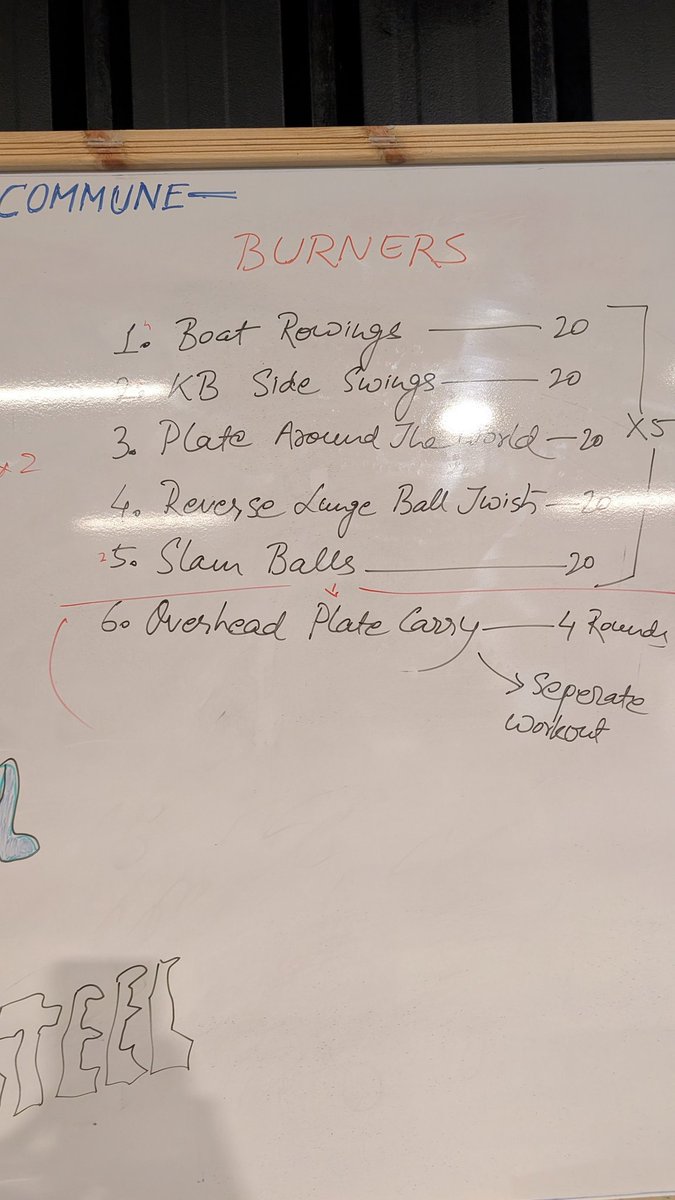 COMMUNE—
BURNERS
1. Boat Rowings — 20
2. KB Side Swings — 20
3. Plate Around The World — 20
X5
x2
4. Reverse Lunge Ball Twist — 20
5. Slam Balls — 20
6. Overhead Plate Carry — 4 Rounds
Seperate
workout
TEEL